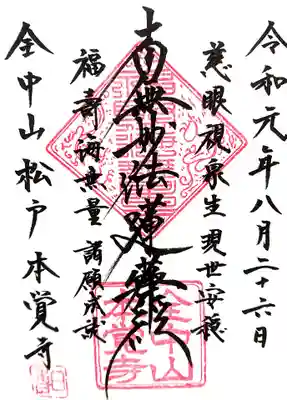 令和元年八月二十六日
慈眼視衆生現世安穏
南無妙法蓮華経
福寿海無量諸願成就
全中山松戸本覚寺
全中山
本覚寺